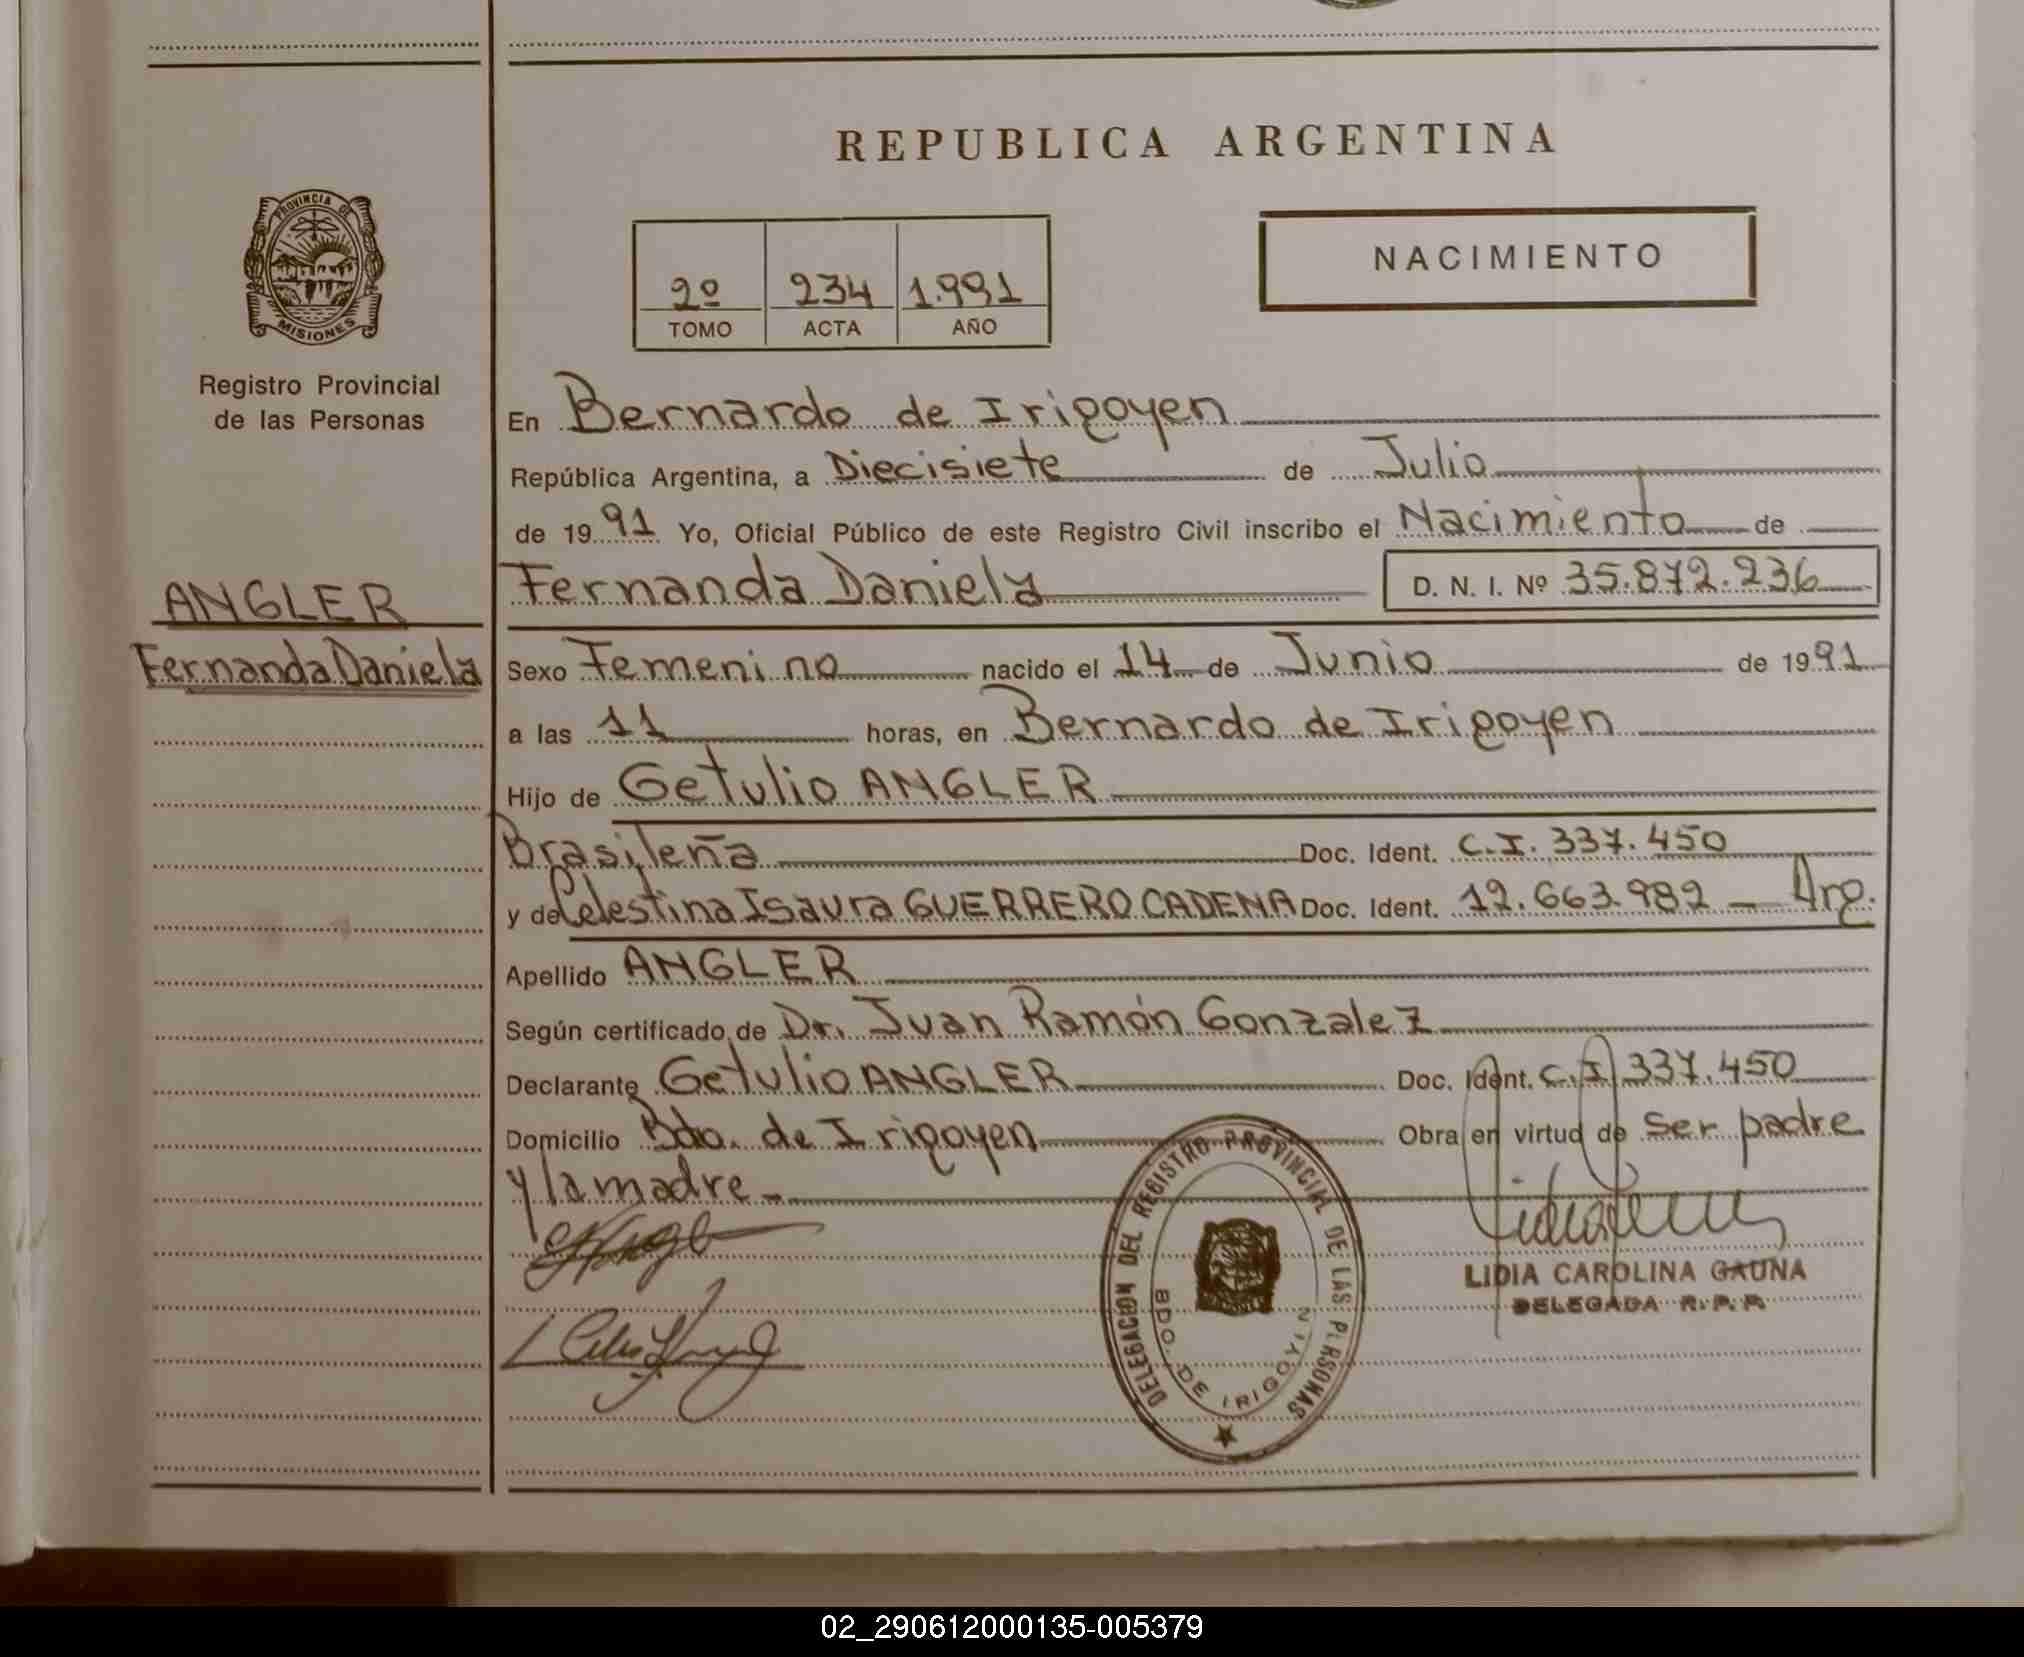 REPUBLICA ARGENTINA
PROVINCIA DE
MISIONES
Registro Provincial
de las Personas
ANGLER
Fernanda Daniela
2º 234 1.991
TOMO ACTA AÑO
NACIMIENTO
En Bernardo de Irigoyen
República Argentina, a Diecisiete de Julio
de 1991 Yo, Oficial Público de este Registro Civil inscribo el Nacimiento de
Fernanda Daniela D. N. I. Nº 35.872.236
Sexo Femenino nacido el 14 de Junio de 1991
a las 11 horas, en Bernardo de Irigoyen
Hijo de Getulio ANGLER
Brasileña Doc. Ident. C.I. 337.450
y de Celestina Isaura GUERRERO CADENA Doc. Ident. 12.663.982 - Arg.
Apellido ANGLER
Según certificado de Dr. Juan Ramón Gonzalez
Declarante Getulio ANGLER Doc. Ident. C.I 337.450
Domicilio Bdo. de Irigoyen Obra en virtud de ser padre
y la madre -
DELEGACION DEL REGISTRO PROVINCIAL DE LAS PERSONAS
BDO. DE IRIGOYEN
LIDIA CAROLINA GAUNA
DELEGADA R. P. P.
02_290612000135-005379